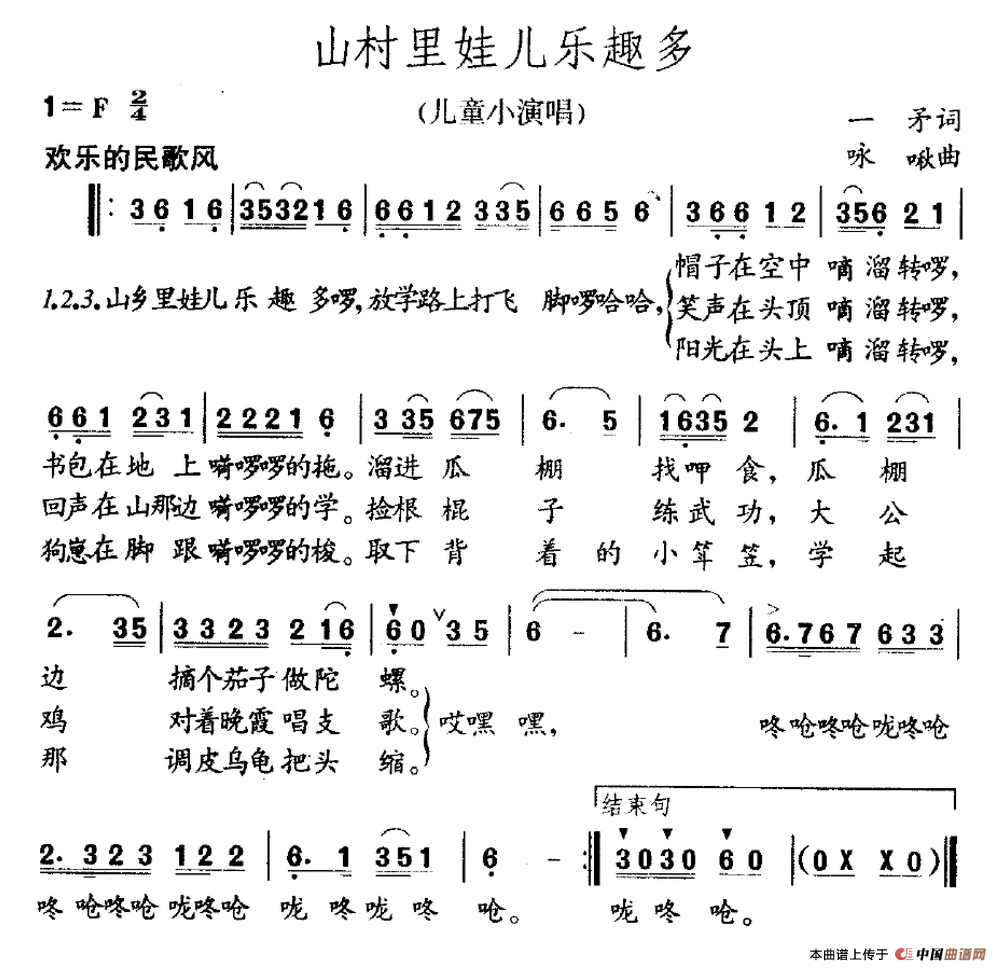 山村里娃儿乐趣多
1=F 2/4
(儿童小演唱)
一 矛词
欢乐的民歌风
咏 啾曲
3 6 1 6 | 3532 1 6 | 6612 335 | 665 6 | 366 12 | 356 21 |
1.2.3. 山乡里娃儿乐趣多啰, 放学路上打飞 脚啰哈哈,
帽子在空中 嘀溜转啰,
笑声在头顶 嘀溜转啰,
阳光在头上 嘀溜转啰,
661 231 | 2221 6 | 3 35 675 | 6. 5 | 1635 2 | 6. 1 231 |
书包在地 上 嗬啰啰的拖。溜进瓜 棚 找呷食, 瓜棚
回声在山那边 嗬啰啰的学。捡根棍 子 练武功, 大公
狗崽在脚 跟 嗬啰啰的梭。取下背 着的小笠, 学起
2. 35 | 3323 2 16 | 60 ∨ 35 | 6 - | 6. 7 | 6.767 633 |
边 摘个茄子做陀 螺。
鸡 对着晚霞唱支 歌。 哎嘿 嘿, 咚呛咚呛咙咚呛
那 调皮乌龟把头 缩。
结束句
2. 323 122 | 6. 1 351 | 6 - :| 3030 60 | (0X X0) |
咚 呛咚呛 咙咚呛 咙 咚咙 咚 呛。 咙 咚 呛。
本曲谱上传于 中国曲谱网